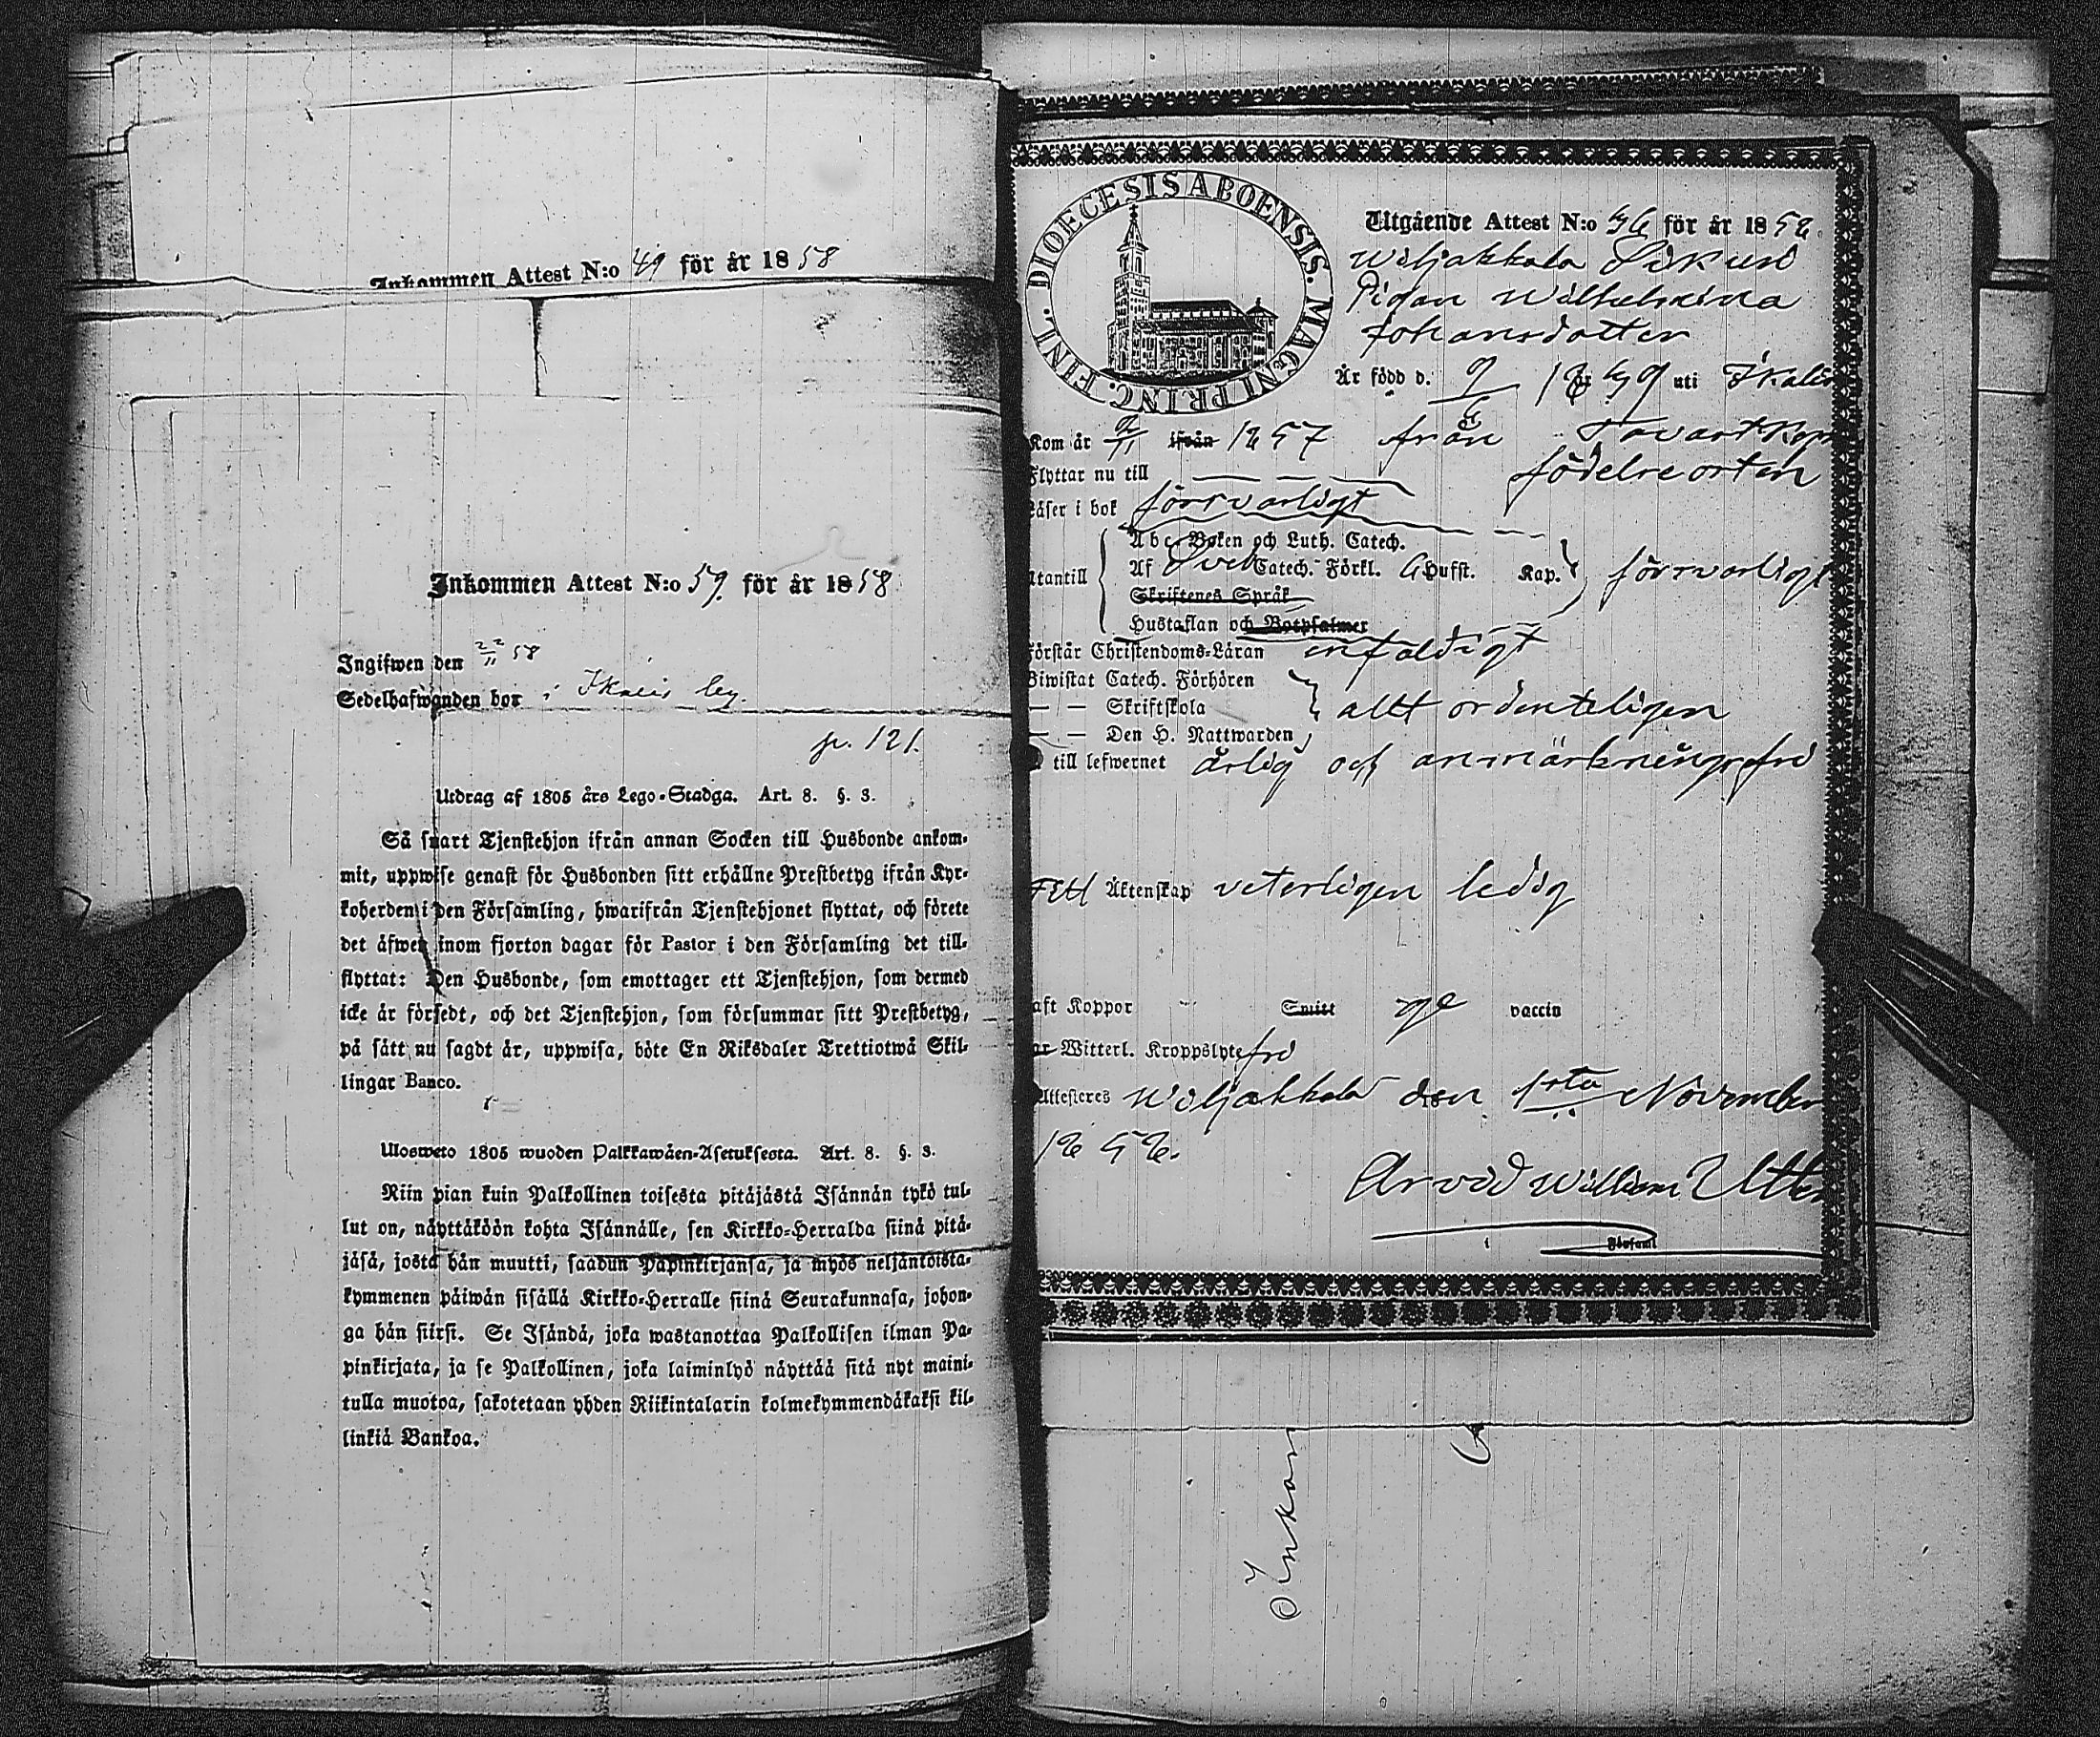 Inkommen Attest N:o 49 för år 1858
Inkommen Attest N:o 59. för år 1858
Ingifwen den 22/11 58
Sedelhafwanden bor i Ikalis by.
p. 121.
Utdrag af 1805 års Lego-Stadga. Art. 8. §. 3.
Så snart Tjenstehjon ifrån annan Socken till Husbonde ankom-
mit, uppwise genast för Husbonden sitt erhållne Prestbetyg ifrån Kyr-
koherden i den Församling, hwarifrån Tjenstehjonet flyttat, och förete
det äfwen inom fjorton dagar för Pastor i den Församling det till-
flyttat: Den Husbonde, som emottager ett Tjenstehjon, som dermed
icke är försedt, och det Tjenstehjon, som försummar sitt Prestbetyg,
på sätt nu sagdt är, uppwisa, böte En Riksdaler Trettiotwå Skil-
lingar Banco.
Ulosweto 1805 wuoden Palkkawäen-Asetuksesta. Art. 8. §. 3.
Niin pian kuin Palkollinen toisesta pitäjästä Isännän tykö tul-
lut on, näyttäköön kohta Isännälle, sen Kirkko-Herralda siinä pitä-
jäsä, josta hän muutti, saadun Papinkirjansa, ja myös neljäntoista-
kymmenen päiwän sisällä Kirkko-Herralle siinä Seurakunnasa, johon-
ga hän siirsi. Se Isändä, joka wastanottaa Palkollisen ilman Pa-
pinkirjata, ja se Palkollinen, joka laiminlyö näyttää sitä nyt maini-
tulla muotoa, sakotetaan yhden Riikintalarin kolmekymmendäkaksi kil-
linkiä Bankoa.
DIOECESIS ABOENSIS. MAGNI PRINC. FINL.
Utgående Attest N:o för år 1858.
Wiljakkala
Pigan Wilhelmina
Johansdotter
Är född d. uti Ikalis
Kom år ifrån 1857 från
Flyttar nu till födelseorten
Läser i bok försvarligt
Abc-Boken och Luth. Catech.
Utantill Af Sveb Catech. Förkl. 6 Hufst. Kap. försvarligt
Skriftenes Språk
Hustaflan och Botpsalmer
Förstår Christendoms-Läran enfaldigt
Biwistat Catech. Förhören
— — Skriftskola allt ordenteligen
— — Den H. Nattwarden
till lefwernet ärlig och anmärkningsfri
Till Äktenskap veterligen ledig
haft Koppor Smitt ge vaccin
ar Witterl. Kroppslyte fri
Attesteres Wiljakkala den 1sta November
1858.
Arvid William
i Församl
Inkom